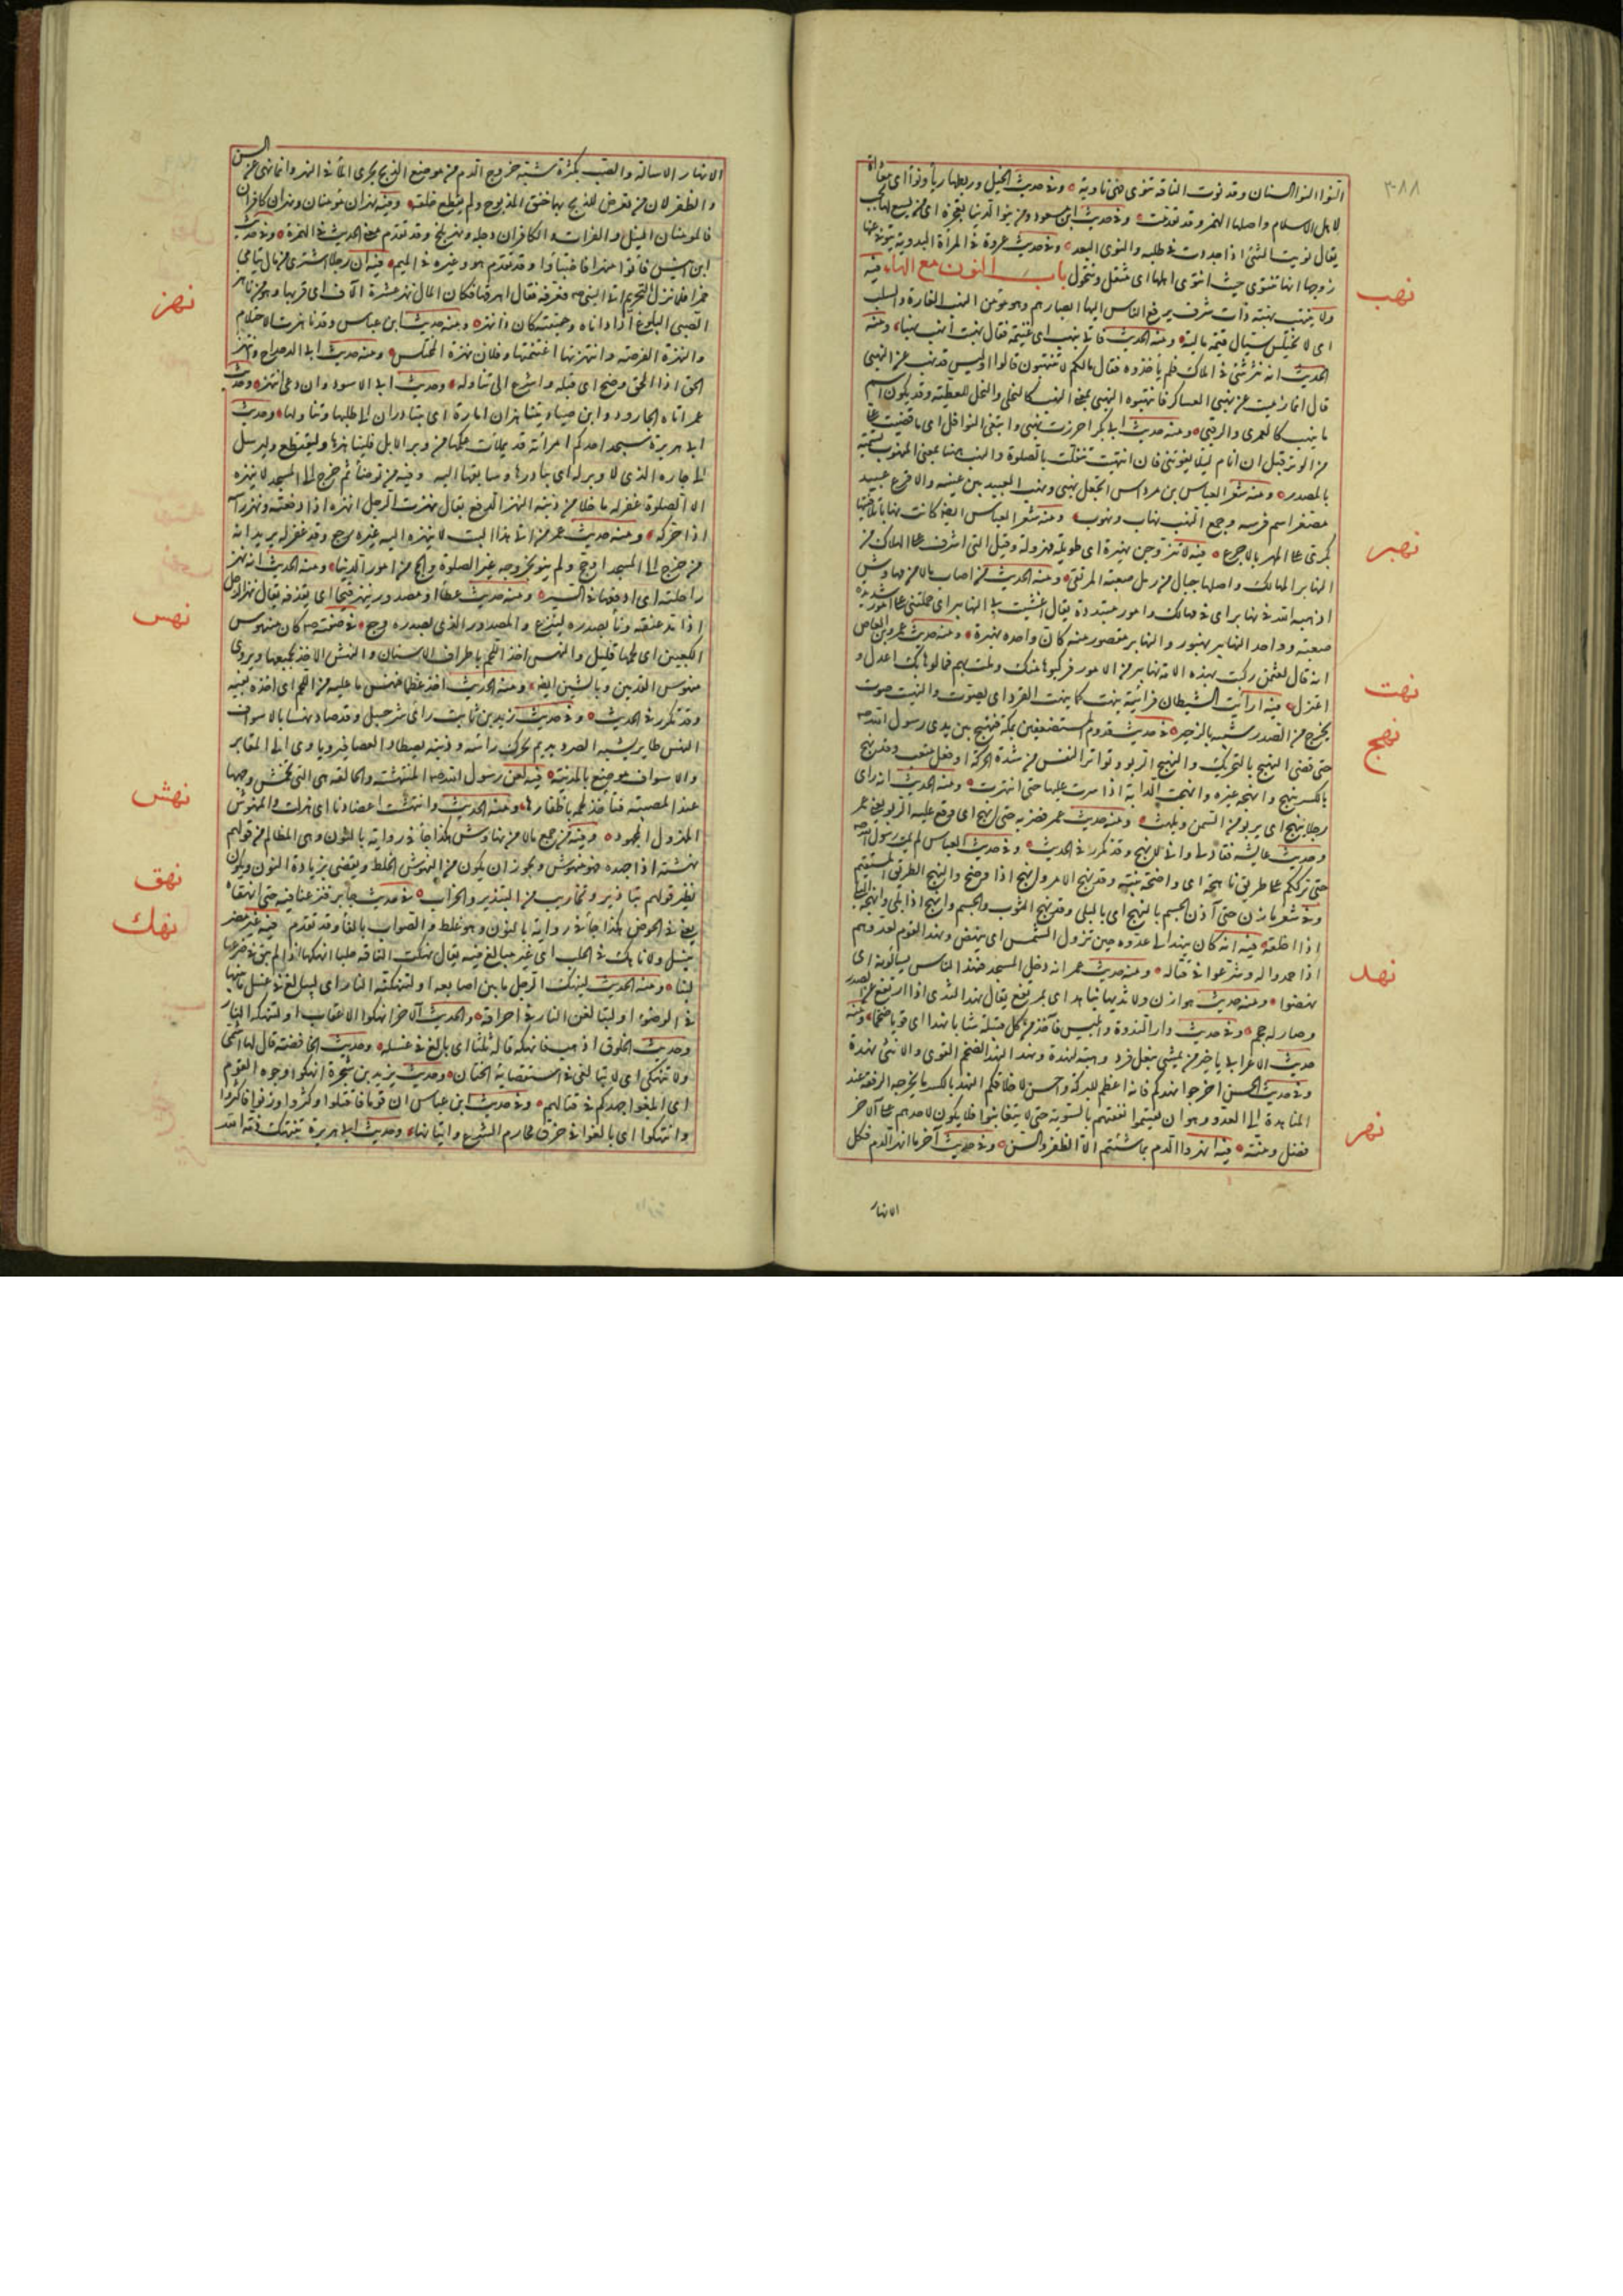 ٣٠٨٨
النوا النوا السنان وقد نوت الناقة تنوى فهى ناوية وفى حديث الخيل ورجل ربطها رياء ونواء اى معاداة
لاهل الاسلام واصلها الهمز وقد تقدمت وفى حديث ابن مسعود ومن ينو الدنيا تعجزه اى من يسع لها يخب
يقال نويت الشئ اذا جددت فى طلبه والنوى البعد وفى حديث عروة فى المرأة البدوية يتوفى عنها
زوجها انها تنتوى حيث انتوى اهلها اى تنتقل وتتحول باب النون مع الهاء فيه
نهب
ولا ينتهب نهبة ذات شرف يرفع الناس اليها ابصارهم وهو مؤمن النهب الغارة والسلب
اى لا يختلس شيئا له قيمة عالية ومنه الحديث فاتى بنهب اى غنيمة يقال نهبت انهب نهبا ومنه
الحديث انه نثر شئ فى املاك فلم يأخذوه فقال مالكم لا تنتهبون قالوا اوليس قد نهيت عن النهبى
قال انما نهيت عن نهبى العساكر فانتهبوا النهبى بمعنى النهب كالنحلى والنحل للعطية وقد يكون اسم
ما ينهب كالعمرى والرقبى ومنه حديث ابى بكر احرزت نهبى وابتغى النوافل اى ما قضيت على
من الوتر قبل ان انام لئلا يفوتنى فان انتبهت تنفلت بالصلوة والنهب هنا بمعنى المنهوب تسمية
بالمصدر ومنه شعر العباس بن مرداس اتجعل نهبى ونهب العبيد بين عيينة والاقرع عبيد
مصغر اسم فرسه وجمع النهب نهاب ونهوب ومنه شعر العباس ايضا كانت نهابا تلافيتها
نهبر
بكرى على المهر بالاجرع فيه لا تتزوجن نهبرة اى طويلة مهزولة وقيل التى اشرفت على الهلاك من
النهابر المهالك واصلها جبال من رمل صعبة المرتقى ومنه الحديث من اصاب مالا من مهاوش
اذهبه الله فى نهابر اى فى مهالك وامور متبددة يقال غشيت بى النهابير اى حملتنى على امور شديدة
صعبة وواحد النهابير نهبور والنهابر مقصور منه كان واحده نهبرة ومنه حديث عمرو بن العاص
انه قال لعثمن ركبت بهذه الامة نهابير من الامور فركبوها منك وملت بهم فمالوا بك اعدل او
نهت
اعتزل فيه اريت الشيطان فرأيته ينهت كما ينهت القرد اى يصوت والنهيت صوت
يخرج من الصدر شبيه بالزحير فى حديث قدوم المستضعفين بمكة فنهج بين يدى رسول الله
نهج
حتى قضى النهج بالتحريك والنهيج الربو وتواتر النفس من شدة الحركة او فعل متعب وقد نهج
بالكسر ينهج وانهجه غيره وانهجت الدابة اذا سرت عليها حتى انبهرت ومنه الحديث انه راى
رجلا ينهج اى يربو من السمن ويلهث ومنه حديث عمر فضربه حتى انهج اى وقع عليه الربو يعنى عمر
وحديث عائشة فقادنى وانى لانهج وقد تكرر فى الحديث وفى حديث العباس لم يمت رسول الله
حتى ترككم على طريق ناهجة اى واضحة بينة وقد نهج الامر وانهج اذا وضح والنهج الطريق المستقيم
وفى شعر مازن حتى آذن الجسم بالنهج اى بالبلى وقد نهج الثوب والجسم وانهج اذا بلى وانهجه البلى
اذا اخلقه فيه انه كان ينهد الى عدوه حين تزول الشمس اى ينهض ونهد القوم لعدوهم
نهد
اذا صمدوا له وشرعوا فى قتاله ومنه حديث عمر انه دخل المسجد فنهد الناس يسألونه اى
نهضوا ومنه حديث هوازن ولا ثديها بناهد اى بمرتفع يقال نهد الثدى اذا ارتفع عن الصدر
وصار له حجم وفى حديث دار الندوة وابليس فآخذ من كل قبيلة شابا نهدا اى قويا ضخما ومنه
حديث الاعرابى يا خير من يمشى بنعل فرد وهبه لنهدة ونهد النهد الضخم القوى والانثى نهدة
وفى حديث الحسن اخرجوا نهدكم فانه اعظم للبركة واحسن لاخلاقكم النهد بالكسر ما يخرجه الرفقة عند
المناهدة الى العدو وهو ان يقسموا نفقتهم بالسوية حتى لا يتغابنوا فلا يكون لاحدهم على الآخر
نهر
فضل ومنة فيه انهروا الدم بما شئتم الا الظفر والسن وفى حديث آخر ما انهر الدم فكل
الانهار
الانهار الاسالة والصب بكثرة شبه خروج الدم من موضع الذبح بجرى الماء فى النهر وانما نهى عن السن
والظفر لان من تعرض للذبح بهما خنق المذبوح ولم يقطع حلقه وفيه نهران مؤمنان ونهران كافران
فالمؤمنان النيل والفرات والكافران دجلة ونهر بلخ وقد تقدم معنى الحديث فى الهمزة وفى حديث
ابن انيس فأتوا منهرا فاختبأوا وقد تقدم هو وغيره فى الميم فيه ان رجلا اشترى من مال يتامى
نهز
خمرا فلما نزل التحريم اتى النبى فعرفه فقال اهرقها فكان المال نهز عشرة الآف اى قربها وهو من ناهز
الصبى البلوغ اذا داناه وحقيقته كان ذا نهز ومنه حديث ابن عباس وقد ناهزت الاحتلام
والنهزة الفرصة وانتهزتها اغتنمتها وفلان نهزة المختلس ومنه حديث ابى الدحداح وانتهز
الحق اذا الحق وضح اى قبله واسرع الى تناوله وحديث ابى الاسود وان دعى انتهز وحديث
عمر اتاه الجارود وابن صياد يتناهزان امارة اى يتبادران الى طلبها وتناولها وحديث
ابى هريرة سيجد احدكم امرأته قد ملأت عكمها من وبر الابل فليناهزها وليقتطع وليرسل
الى جاره الذى لا وبر له اى يبادرها ويسابقها اليه وفيه من توضأ ثم خرج الى المسجد لا ينهزه
الا الصلوة غفر له ما خلا من ذنبه النهز الدفع يقال نهزت الرجل انهزه اذا دفعته ونهز رأسه
اذا حركه ومنه حديث عمر من اتى هذا البيت لا ينهزه اليه غيره رجع وقد غفر له يريد انه
من خرج الى المسجد او حج ولم ينو بخروجه غير الصلوة والحج من امور الدنيا ومنه الحديث انه نهز
راحلته اى دفعها فى السير ومنه حديث عطاء او مصدور ينهز قيحا اى يقذفه يقال نهز الرجل
نهس
اذا مد عنقه وناء بصدره ليتهوع والمصدور الذى بصدره وجع فى صفته كان منهوس
الكعبين اى لحمهما قليل والنهس اخذ اللحم باطراف الاسنان والنهش الاخذ بجميعها ويروى
منهوس القدمين وبالشين ايضا ومنه الحديث اخذ عظما فنهس ما عليه من اللحم اى اخذه بفيه
وقد تكرر فى الحديث وفى حديث زيد بن ثابت راى شرحبيل وقد صاد نهسا بالاسواف
النهس طاير يشبه الصرد يديم تحريك رأسه وذنبه يصطاد العصافير ويأوى الى المقابر
والاسواف موضع بالمدينة فيه لعن رسول الله المنتهشة والحالقة هى التى تخمش وجهها
نهش
عند المصيبة فتأخذ لحمه باظفارها ومنه الحديث وانتهشت اعضادنا اى هزلت والمنهوش
المهزول المجهود وفيه من جمع مالا من نهاوش هكذا جاء فى رواية بالنون وهى المظالم من قولهم
نهشه اذا جهده فهو منهوش ويجوز ان يكون من الهوش الخلط ويقضى بزيادة النون ويكون
نهق
نظير قولهم تباذير وتخاريب من التبذير والخراب فى حديث جابر فنزعنا فيه حتى انهقناه
نهك
يعنى فى الحوض هكذا جاء فى رواية بالنون وهو غلط والصواب بالفاء وقد تقدم فيه غير مضر
بنسل ولا ناهك فى الحلب اى غير مبالغ فيه يقال نهكت الناقة حلبا انهكها اذا لم تبق فى ضرعها
لبنا ومنه الحديث لينهك الرجل ما بين اصابعه او لتنهكنه النار اى ليبالغ فى غسل ما بينها
فى الوضوء او لتبالغن النار فى احراقه والحديث الآخر انهكوا الاعقاب او لتنهكنها النار
وحديث الخلوق اذهب فانهكه قاله ثلثا اى بالغ فى غسله وحديث الخافضة قال لها اشمى
ولا تنهكى اى لا تبالغى فى استقصاء الختان وحديث يزيد بن شجرة انهكوا وجوه القوم
اى ابلغوا جهدكم فى قتالهم وفى حديث ابن عباس ان قوما قتلوا وكثروا وزنوا فاكثروا
وانتهكوا اى بالغوا فى خرق محارم الشرع واتيانها وحديث ابى هريرة تنتهك ذمة الله